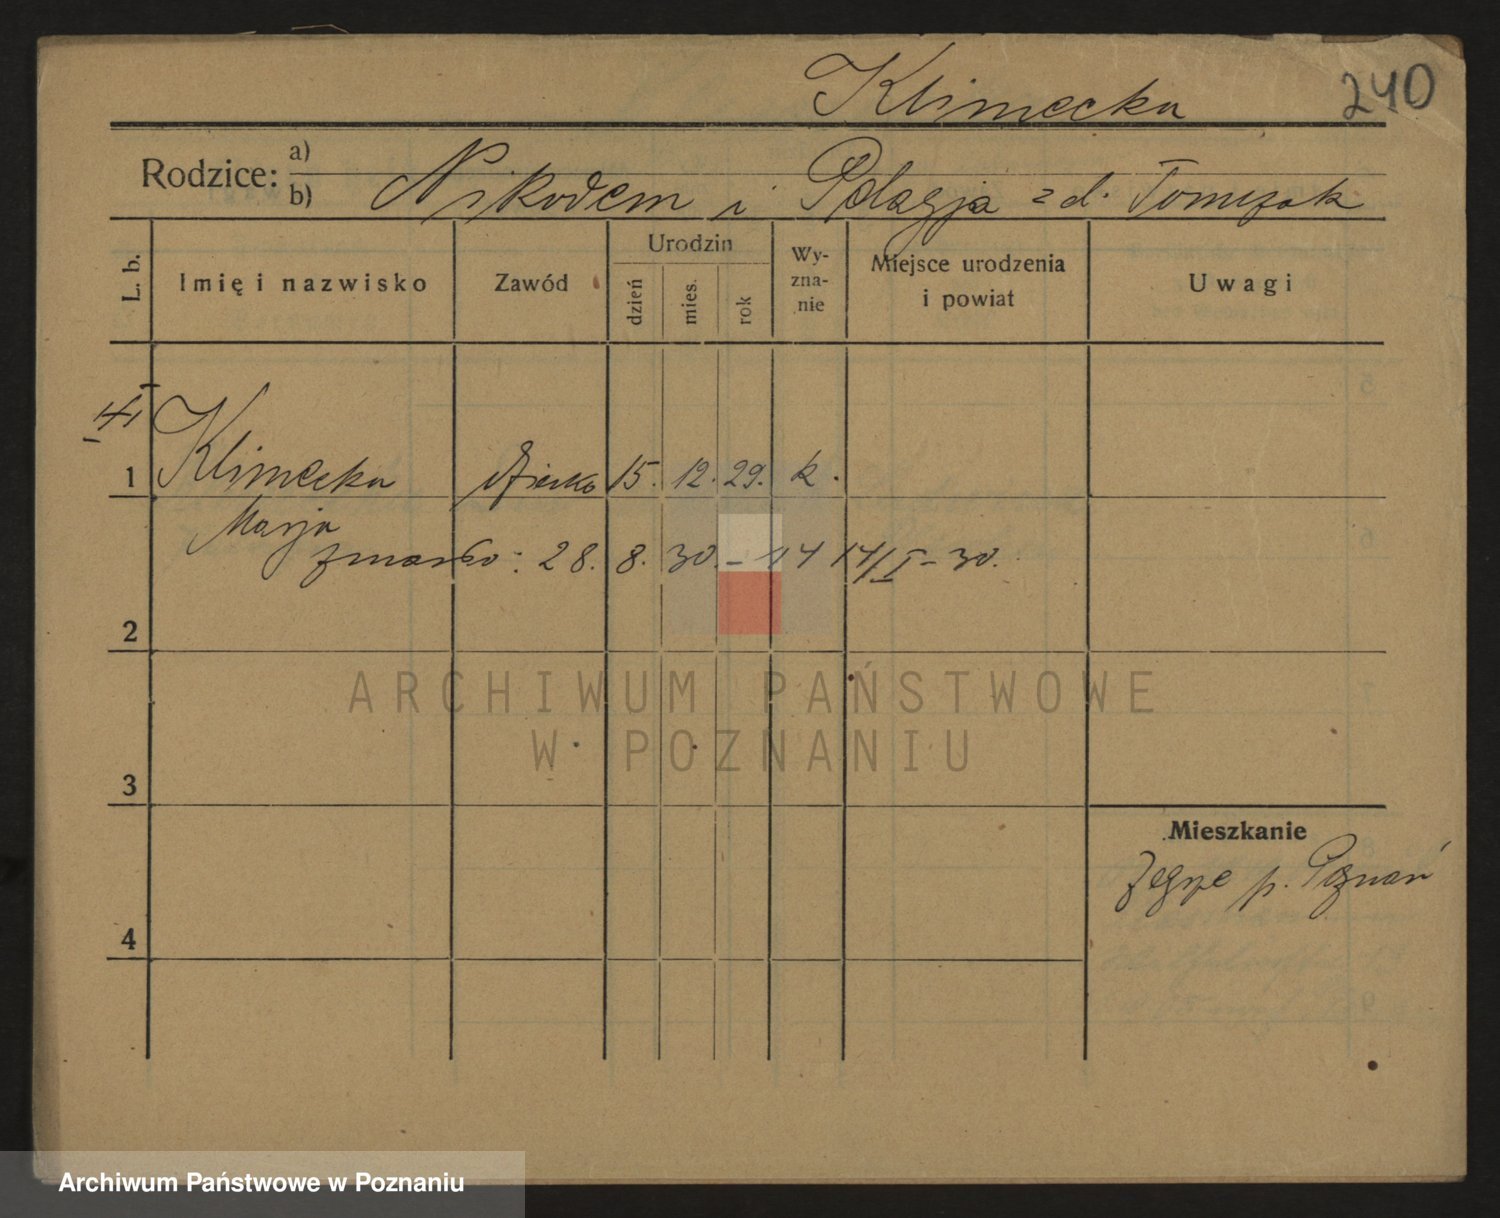 Klimecka 240
Rodzice: a)
b) Nikodem i Pelagja z d. Tomczak
L. b. Imię i nazwisko Zawód Urodzin dzień mies. rok Wyznanie Miejsce urodzenia i powiat Uwagi
1 Klimecka dziecko 15. 12. 29. k.
Marja
zmarło: 28. 8. 30. – 14 14/I – 30.
2
ARCHIWUM PAŃSTWOWE
W POZNANIU
3
Mieszkanie
Zegrze p. Poznań
4
Archiwum Państwowe w Poznaniu